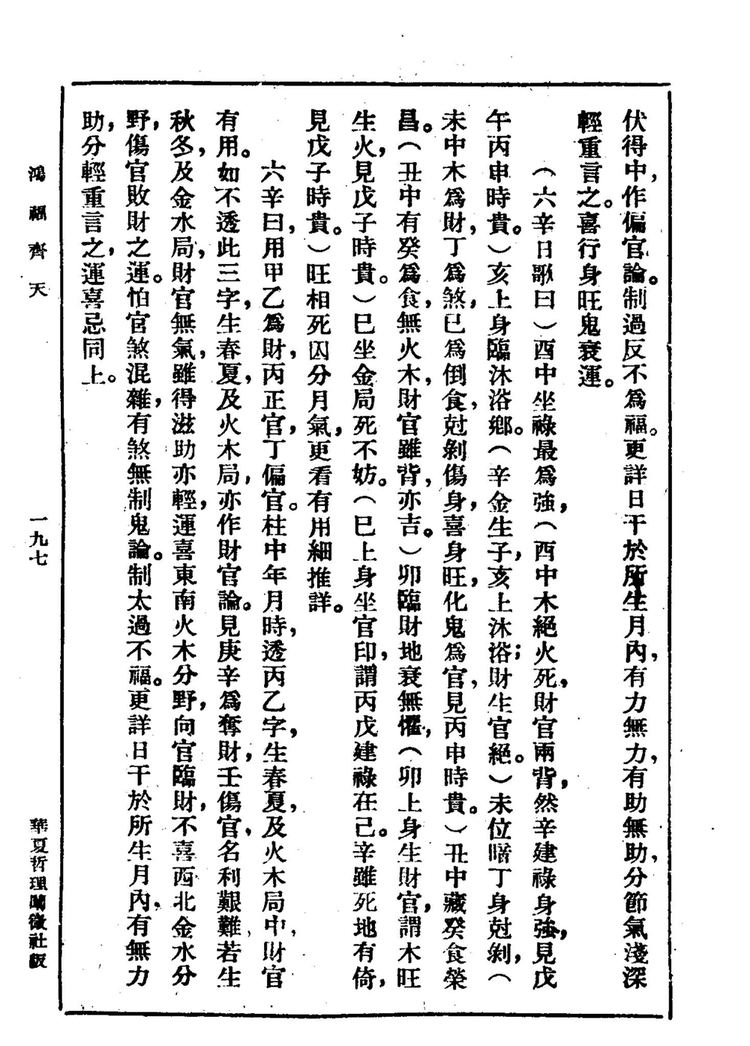 伏得中，作偏官論。制過反不爲福。更詳日干於所生月內，有力無力，有助無助，分節氣淺深
輕重言之。喜行身旺鬼衰運。
（六辛日歌曰）酉中坐祿最爲強，（酉中木絕火死，財官兩背，然辛建祿身強，見戊
午丙申時貴。）亥上身臨沐浴鄉。（辛金生子，亥上沐浴；財生官絕。）未位暗丁身尅剝，（
未中木爲財，丁爲煞，已爲倒食，尅剝傷身，喜身旺，化鬼爲官，見丙申時貴。）丑中藏癸食榮
昌。（丑中有癸爲食，無火木，財官雖背，亦吉。）卯臨財地衰無懼，（卯上身生財官，謂木旺
生火，見戊子時貴。）巳坐金局死不妨。（巳上身坐官印，謂丙戊建祿在己。辛雖死地有倚，
見戊子時貴。）旺相死囚分月氣，更看有用細推詳。
六辛曰，用甲乙爲財，丙正官，丁偏官。柱中年月時，透丙乙字，生春夏，及火木局中，財官
有用。如不透此三字，生春夏，及火木局，亦作財官論。見庚辛爲奪財，壬傷官，名利艱難，若生
秋冬，及金水局，財官無氣，雖得滋助亦輕，運喜東南火木分野，向官臨財，不喜西北金水分
野，傷官敗財之運。怕官煞混雜，有煞無制鬼論。制太過不福。更詳日干於所生月內，有無力
助，分輕重言之，運喜忌同上。
鴻福齊天
一九七
華夏哲理闡微社版